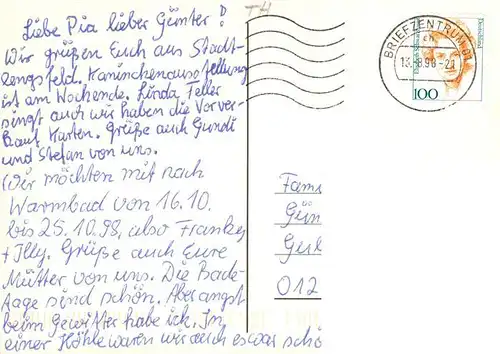 Liebe Pia lieber Günter!
Wir grüßen Euch aus Stadt-
lengsfeld. Kaninchenausstellung
ist am Wochende. Linda Teller
singt auch wir haben die Vorver-
kauf Karten. Grüße auch Gundi
und Stefan von uns.
Wir möchten mit nach
Warmbad von 16.10.
bis 25.10.98, also Franky
+ Jlly. Grüße auch Eure
Mütter von uns. Die Bade-
tage sind schön. Aber angst
beim Gewitter habe ich. In
einer Höhle waren wir auch es war schö
TH
BRIEFZENTRUM 01
Deutschland
100
Fami
Gün
012